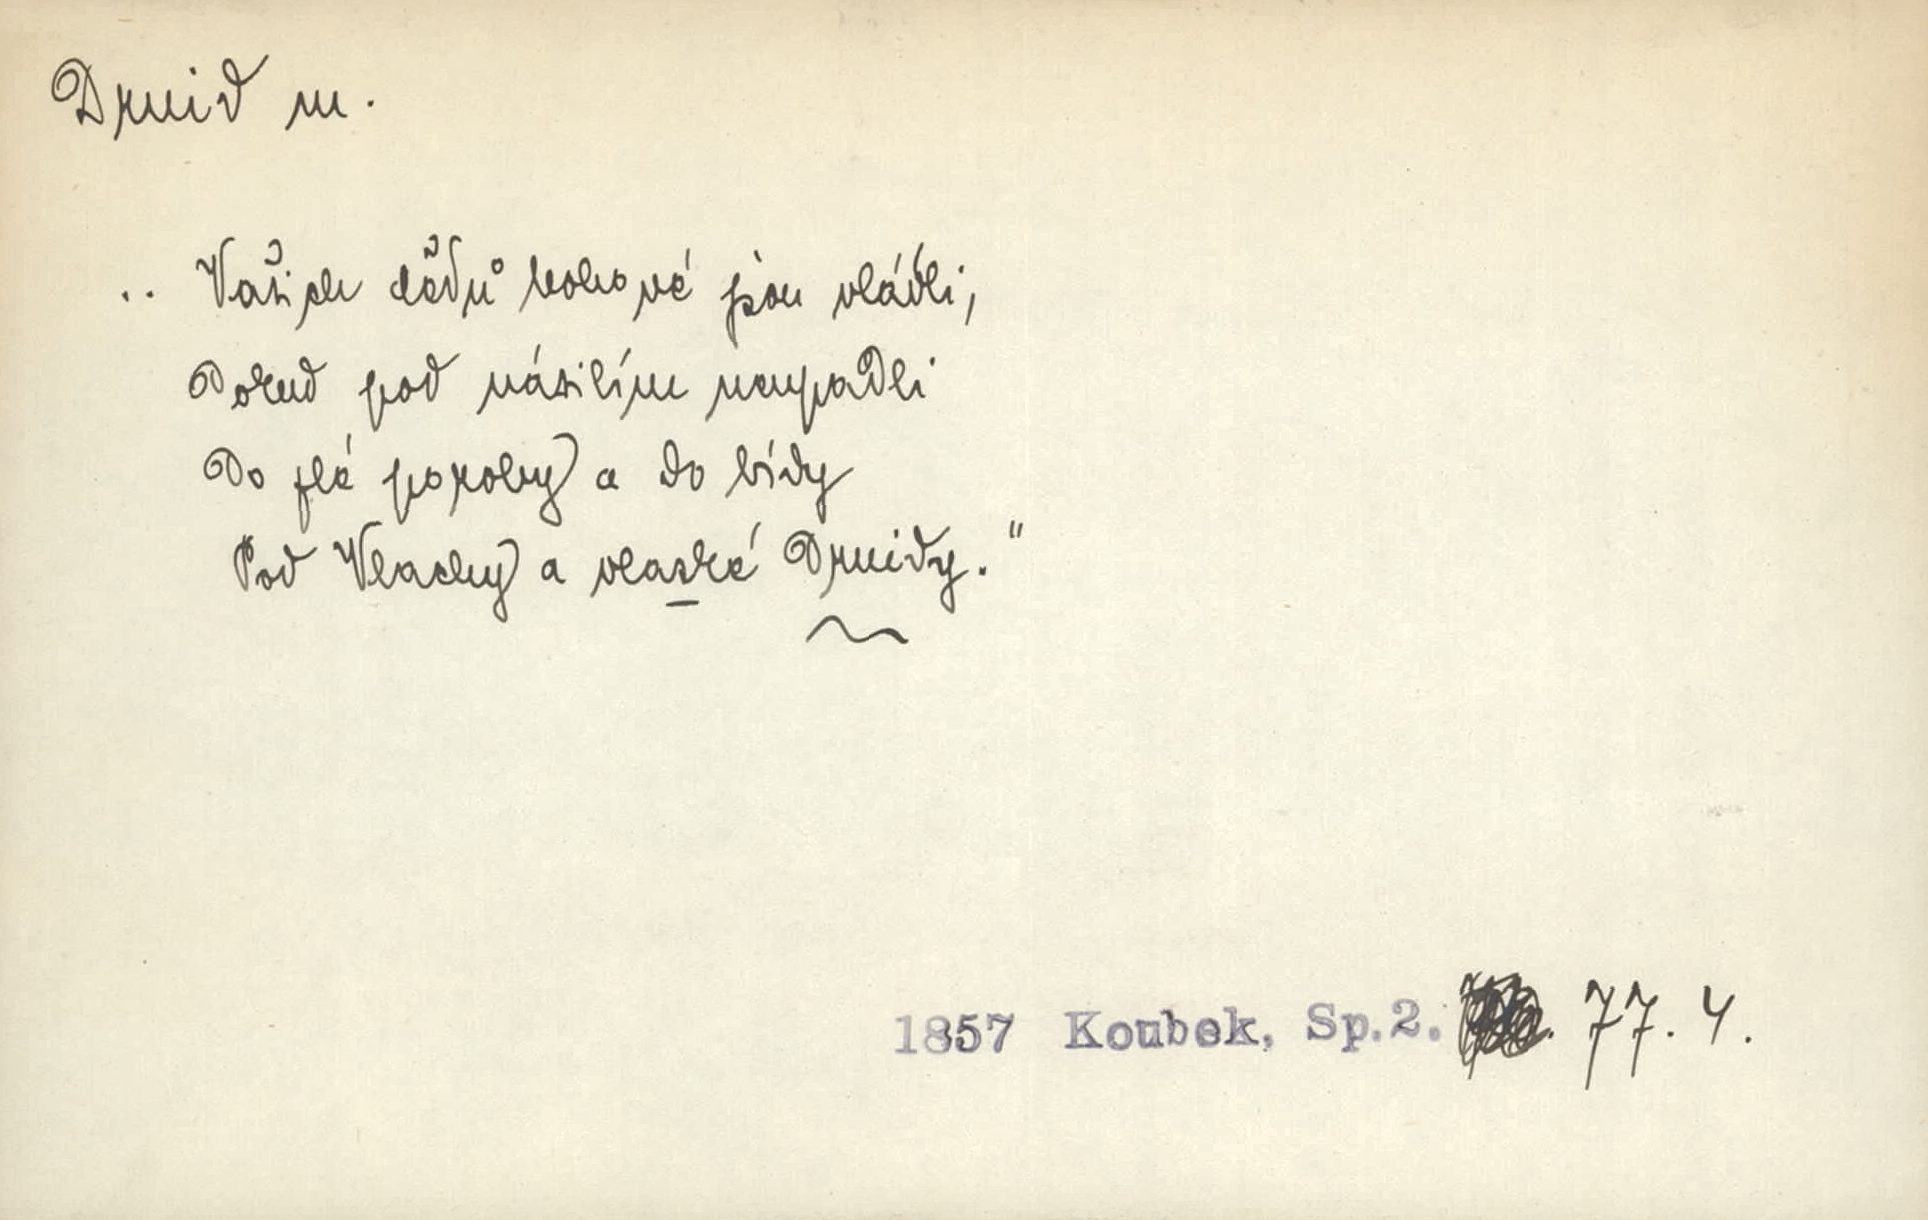 Druid m.
.. Vašich dědů bohové jsou vládli,
Dokud pod násilím neupadli
Do zlé poroby a do bídy
Pod Vlachy a vlaské Druidy."
1857 Koubek, Sp.2. 77. 4.